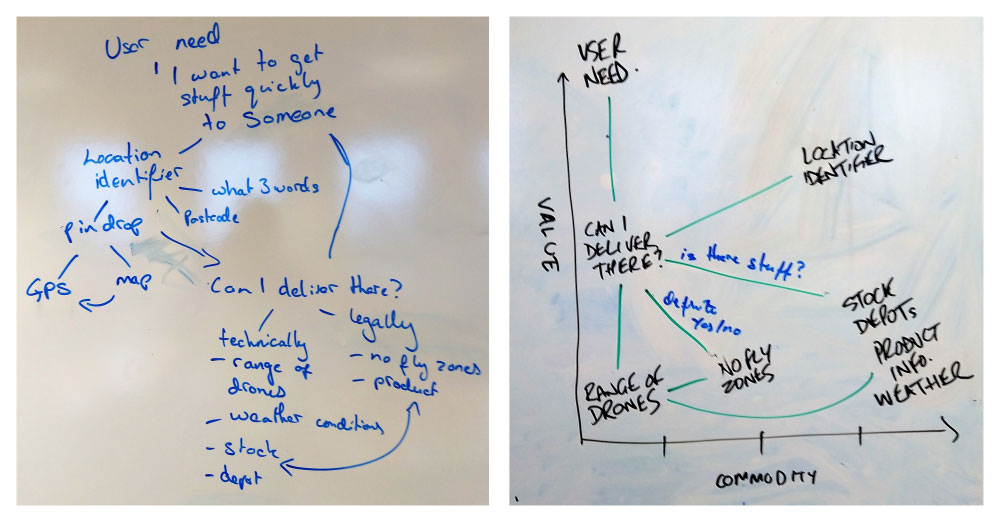 User need
" I want to get
stuff quickly
to Someone
Location
identifier
- what 3 words
Postcode
pin drop
GPS
map
Can I deliver there?
technically
- range of
drones
- weather conditions
- stock
- depot
- legally
- no fly zones
- product
USER
NEED.
VALUE
CAN I
DELIVER
THERE?
LOCATION
IDENTIFIER
is there stuff?
definite
Yes/no
STOCK
DEPOTS
PRODUCT
INFO.
WEATHER
NO FLY
ZONES
RANGE OF
DRONES
COMMODITY